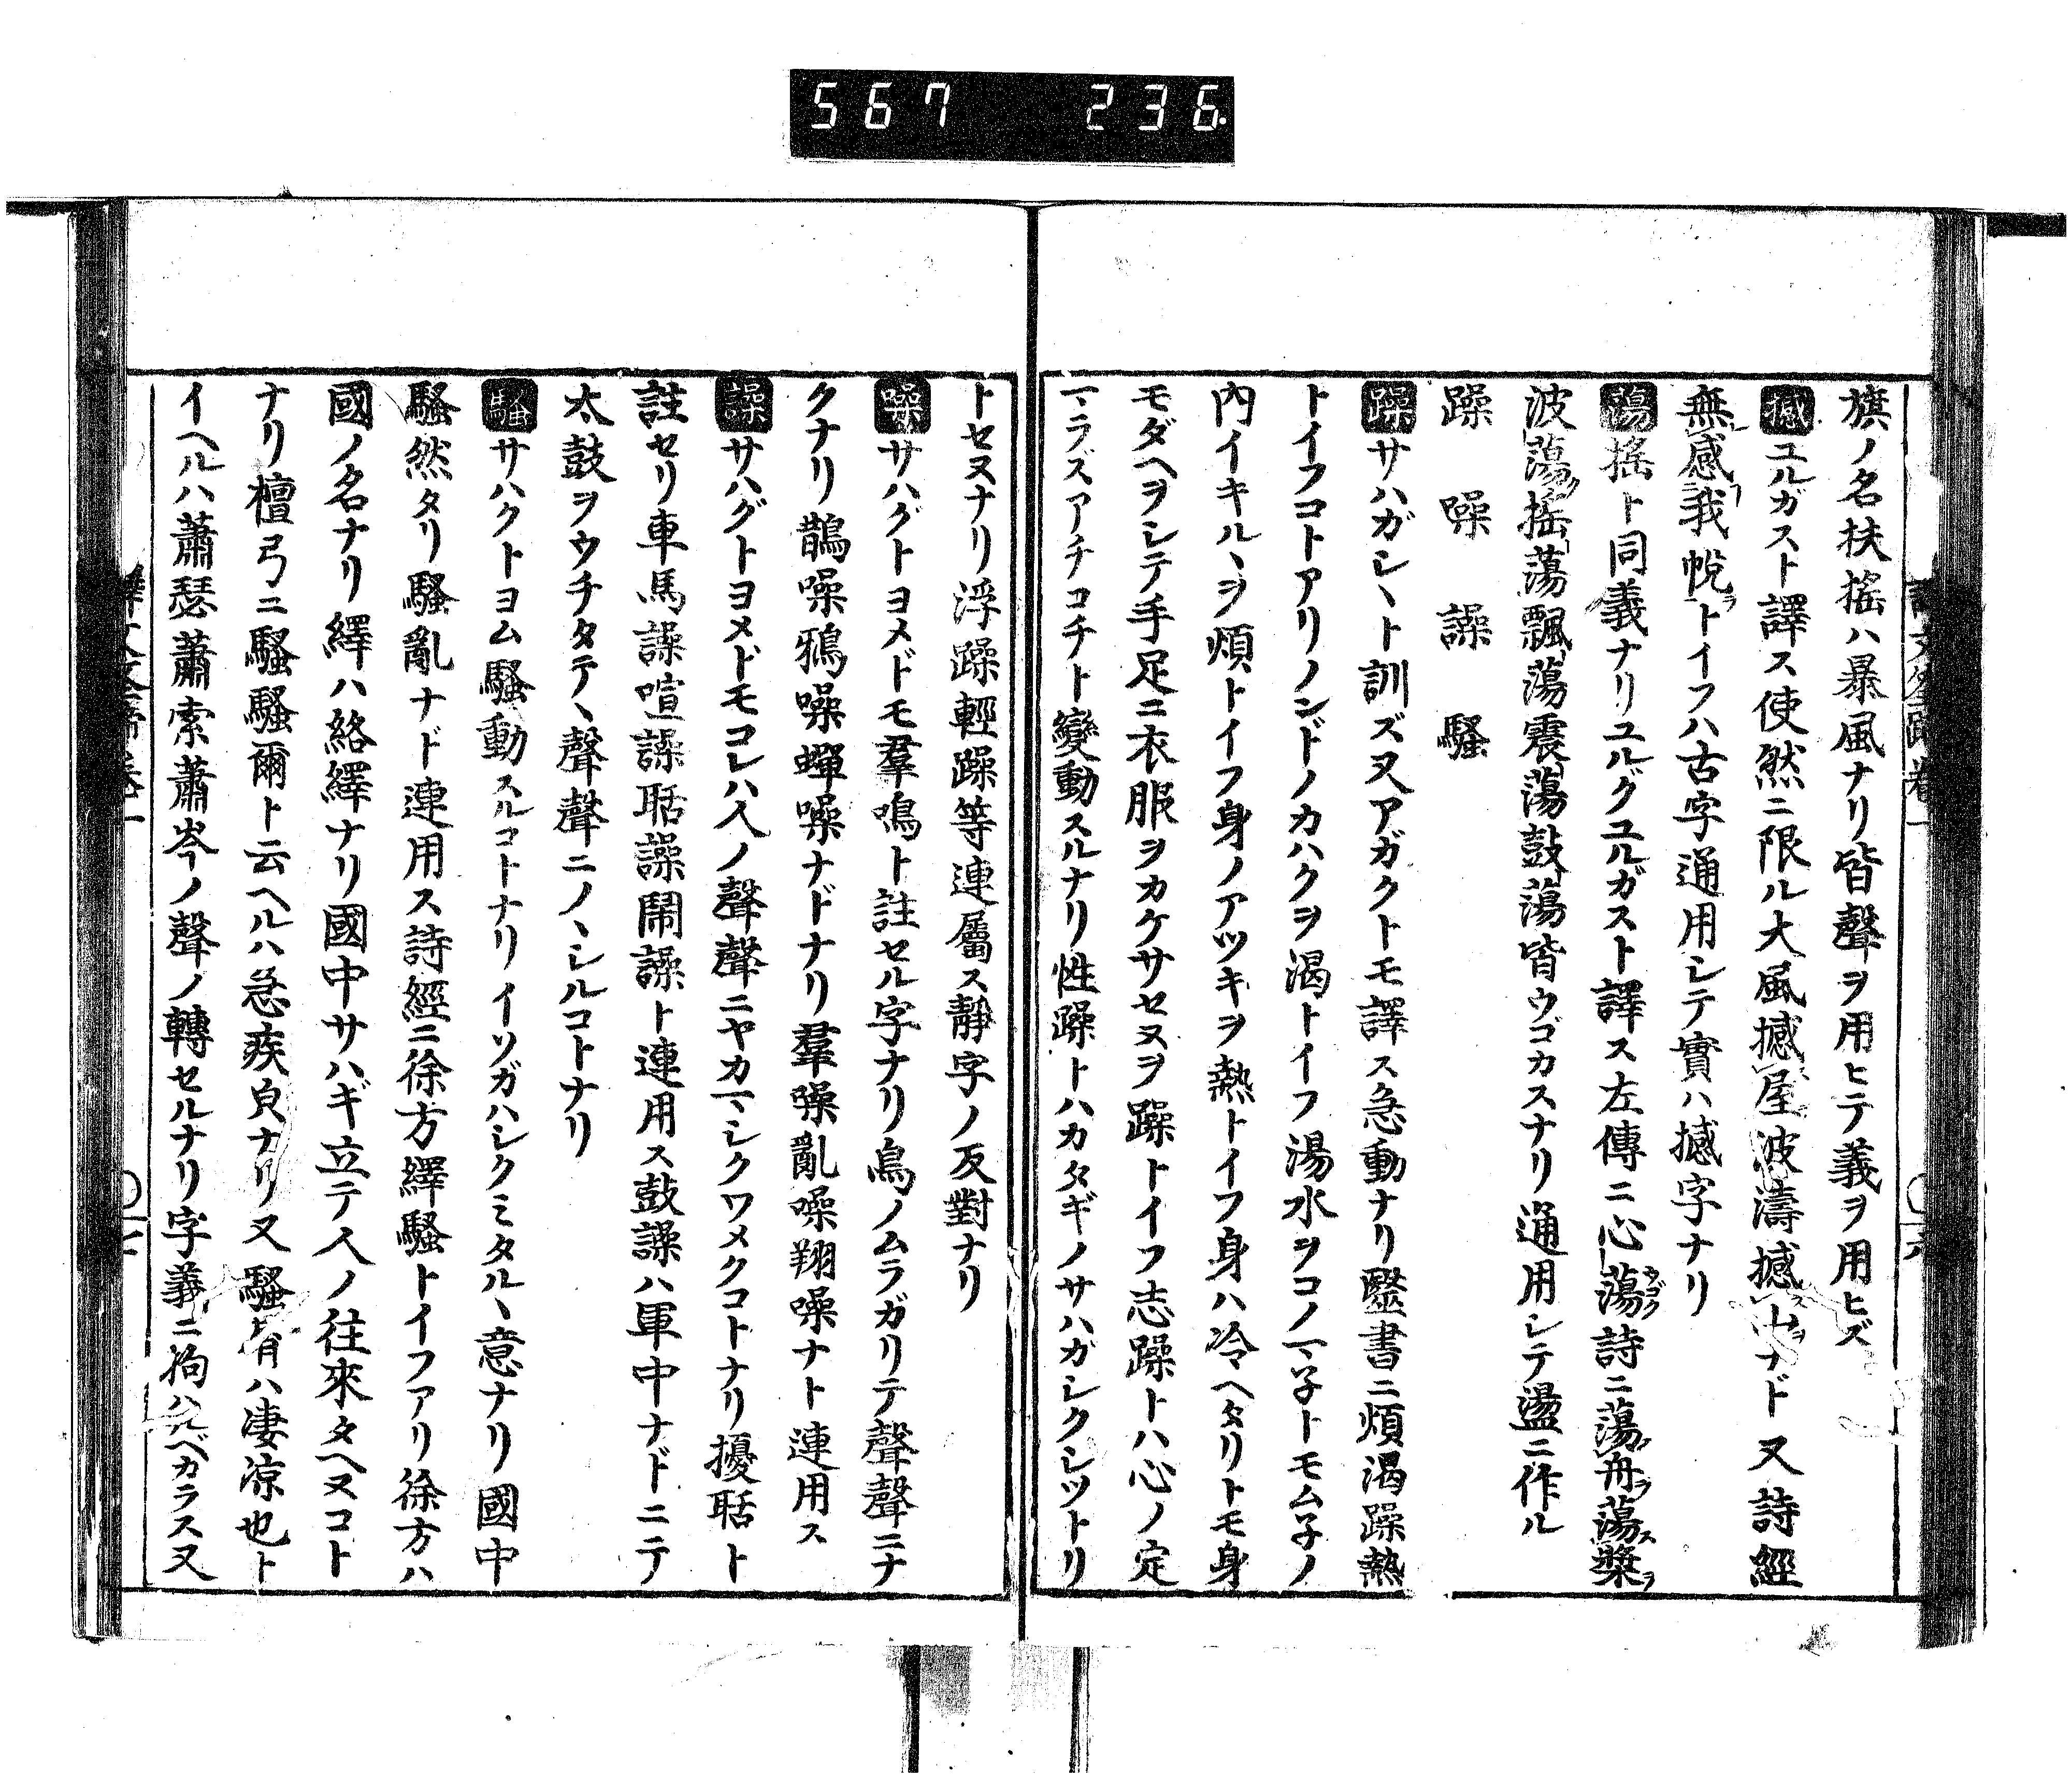 567 236
旗ノ名扶搖ハ暴風ナリ皆聲ヲ用ヒテ義ヲ用ヒズ
撼ユルガスト譯ス使然ニ限ル大風撼屋波濤撼山ナド又詩經
無感我帨トイフハ古字通用シテ實ハ撼字ナリ
蕩搖ト同義ナリユルグユルガスト譯ス左傳ニ心蕩詩ニ蕩舟蕩槳
波蕩搖蕩飄蕩震蕩鼓蕩皆ウゴカスナリ通用シテ盪ニ作ル
躁 噪 譟 騷
躁サハガシヽト訓ズ又アガクトモ譯ス急動ナリ毉書ニ煩渴躁熱
トイフコトアリノンドノカハクヲ渴トイフ湯水ヲコノマ子トモムネノ
內イキルヽヲ煩トイフ身ノアツキヲ熱トイフ身ハ冷ヘタリトモ身
モダヘヲシテ手足ニ衣服ヲカケサセヌヲ躁トイフ志躁トハ心ノ定
マラズアチコチト變動スルナリ性躁トハカタギノサハガシクシツトリ
トセヌナリ浮躁輕躁等連屬ス靜字ノ反對ナリ
噪サハグトヨメドモ羣鳴ト註セル字ナリ鳥ノムラガリテ聲聲ニナ
クナリ鵲噪鴉噪蟬噪ナドナリ羣噪亂噪翔噪ナト連用ス
譟サハグトヨメドモコレハ人ノ聲聲ニヤカマシクワメクコトナリ擾聒ト
註セリ車馬譟喧譟聒譟鬧譟ト連用ス鼓譟ハ軍中ナドニテ
太鼓ヲウチタテヽ聲聲ニノヽシルコトナリ
騷サハクトヨム騷動スルコトナリイソガハシクミタルヽ意ナリ國中
騷然タリ騷亂ナド連用ス詩經ニ徐方繹騷トイフアリ徐方ハ
國ノ名ナリ繹ハ絡繹ナリ國中サハギ立テ人ノ往來タヘヌコト
ナリ檀弓ニ騷騷爾ト云ヘルハ急疾皃ナリ又騷屑ハ凄凉也ト
イヘルハ蕭瑟蕭索蕭岑ノ聲ノ轉セルナリ字義ニ拘ハルベカラス又